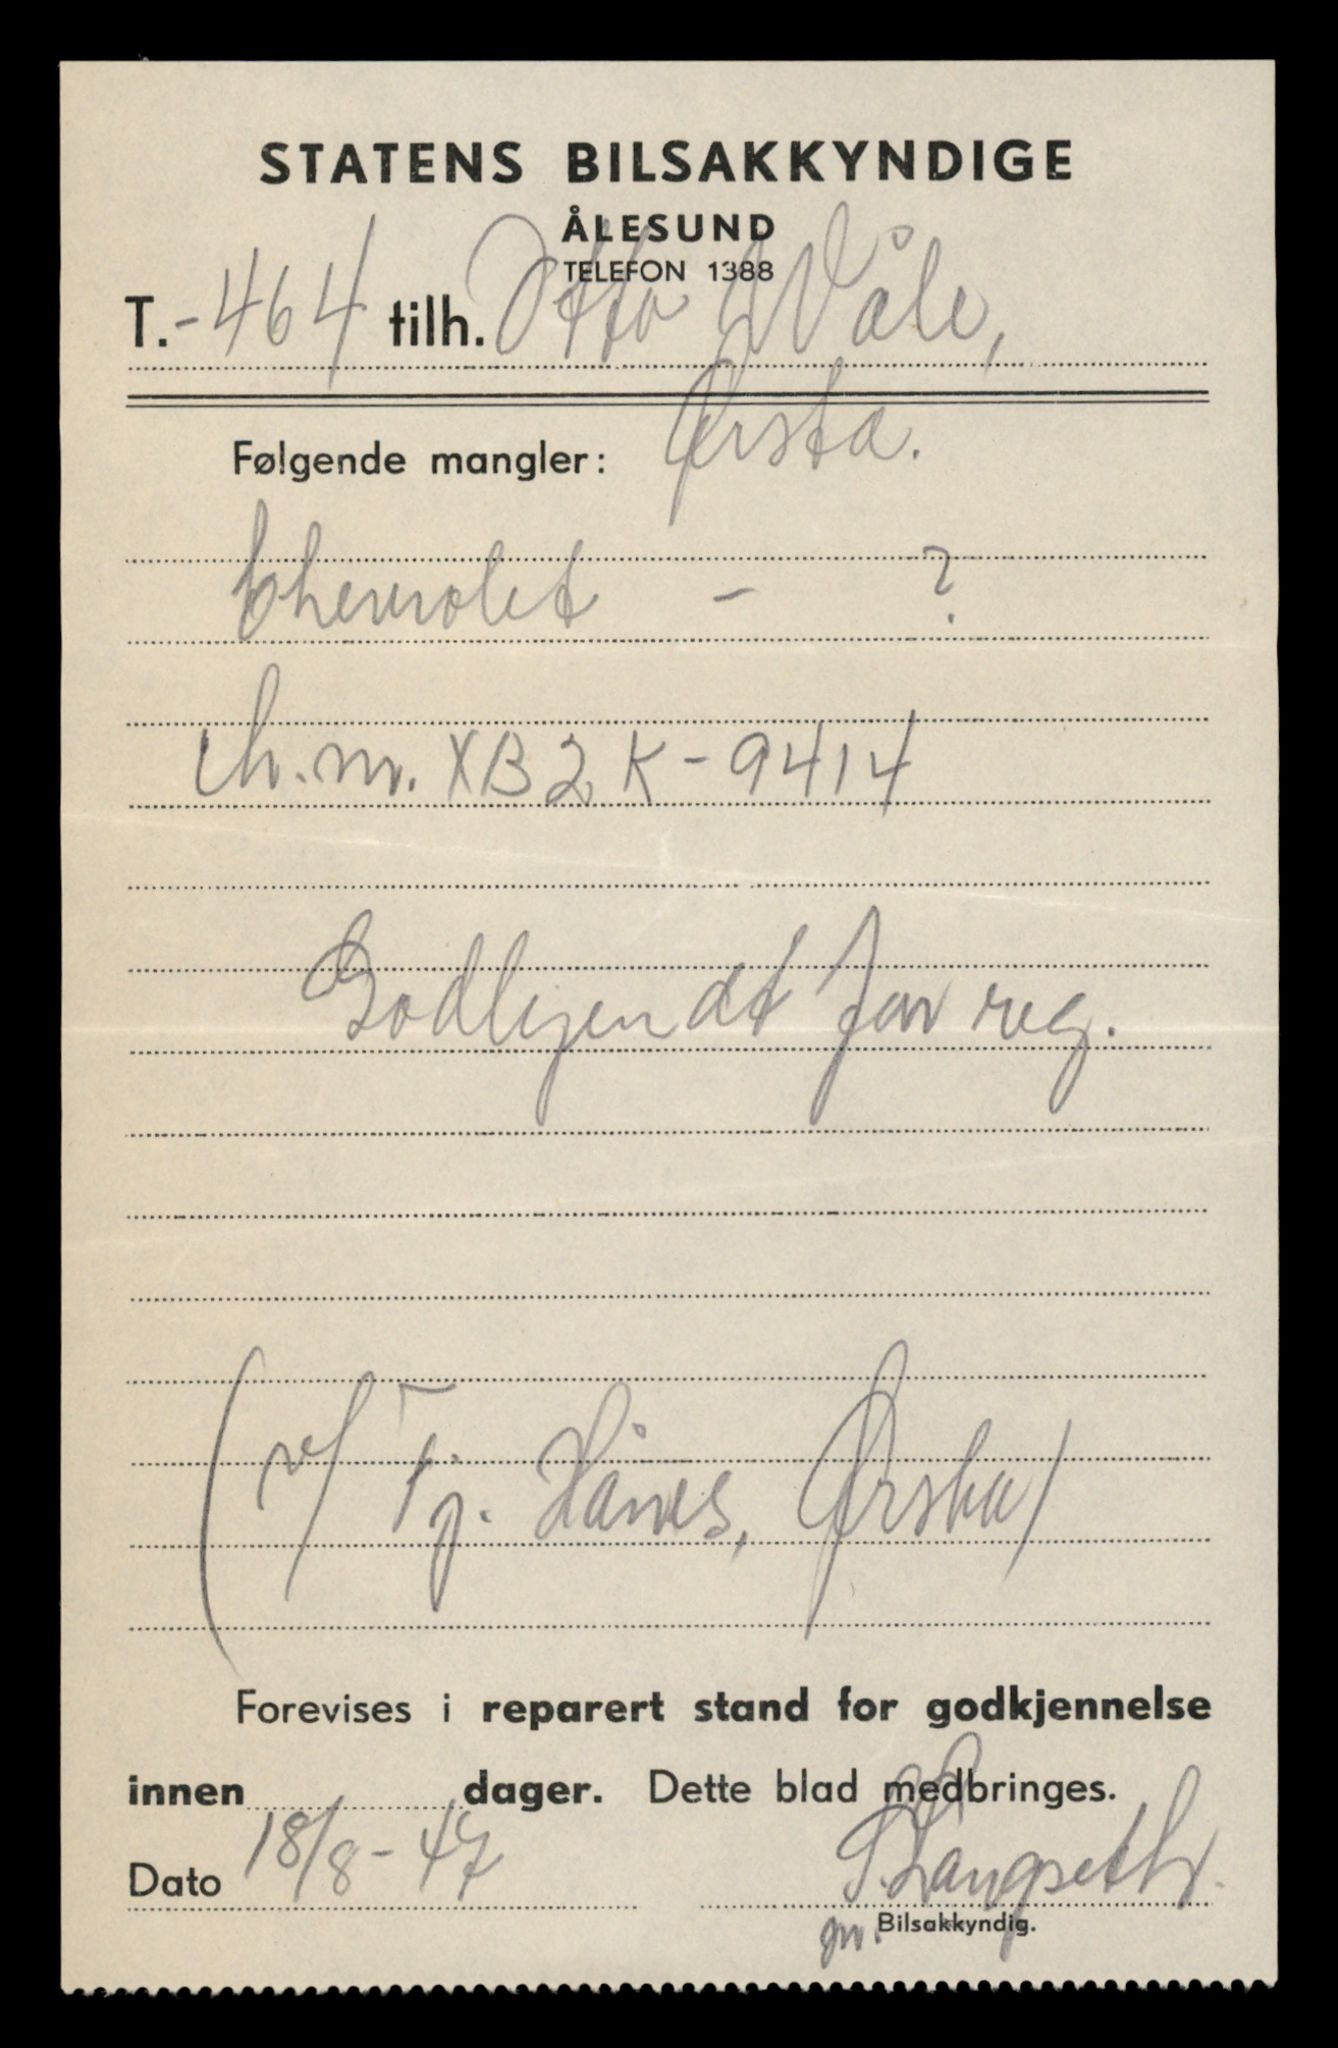 STATENS BILSAKKYNDIGE
ÅLESUND
TELEFON 1388
T.-464 tilh. Otto Våle,
Ørsta.
Følgende mangler:
Chevrolet - ?
Ch. nr. XB2K-9414
Godkjendt for reg.
(v/ Tj. Hånes, Ørsta)
Forevises i reparert stand for godkjennelse
innen dager. Dette blad medbringes.
Dato 18/8-47 S. Langseth.
Bilsakkyndig.